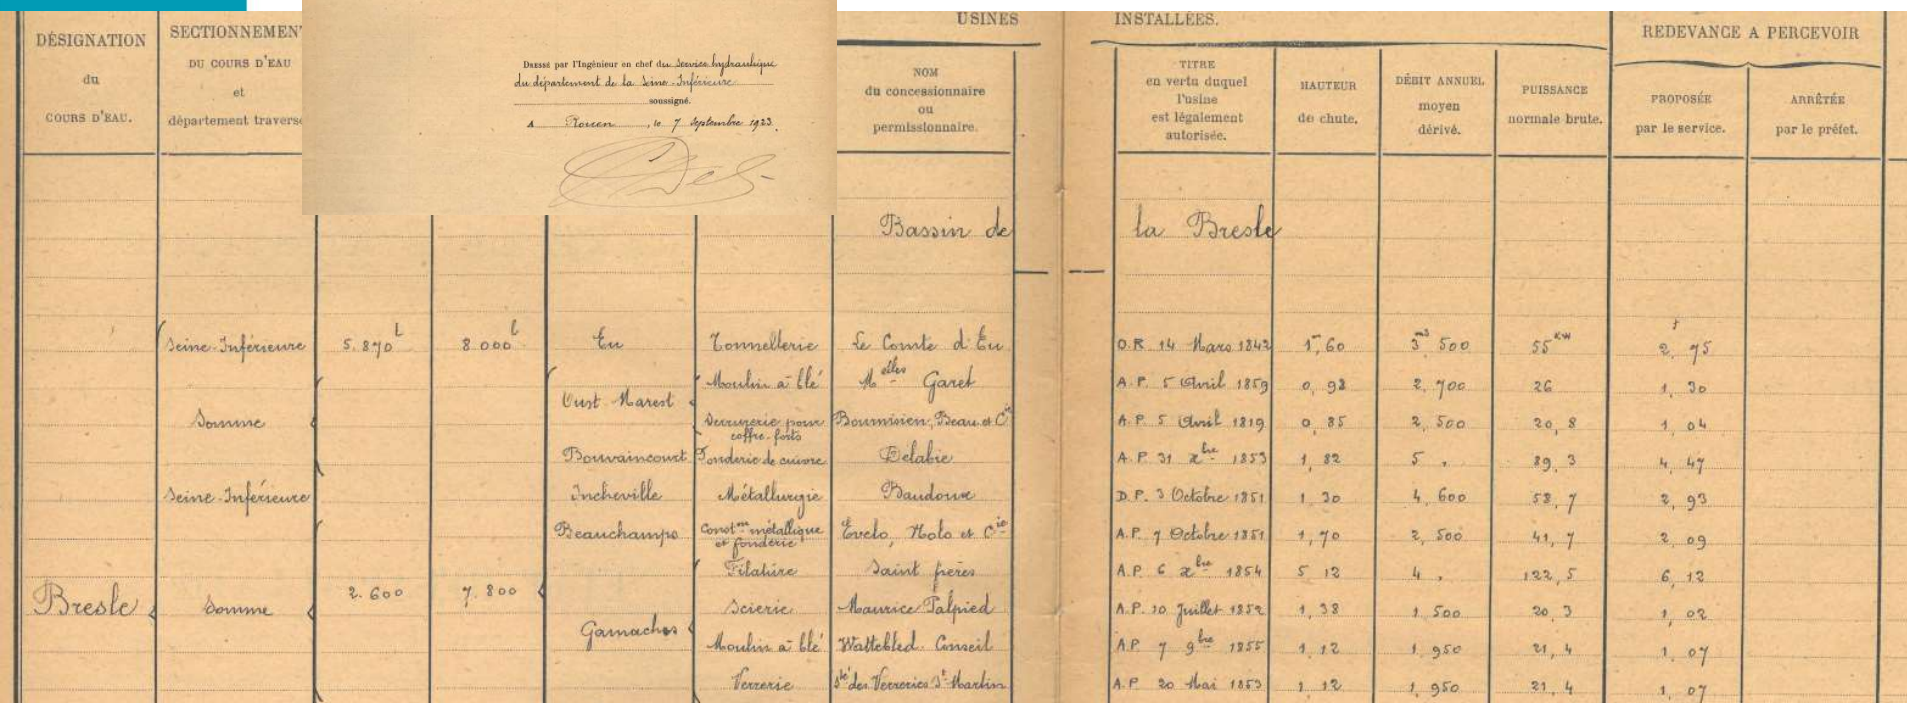 USINES INSTALLÉES.
REDEVANCE A PERCEVOIR
DÉSIGNATION
du
COURS D'EAU.
SECTIONNEMEN
DU COURS D'EAU
et
département travers
DRESSÉ par l'Ingénieur en chef du Service hydraulique
du département de la Seine-Inférieure
soussigné.
A Rouen, le 7 Septembre 1923.
NOM
du concessionnaire
ou
permissionnaire.
TITRE
en vertu duquel
l'usine
est légalement
autorisée.
HAUTEUR
de chute.
DÉBIT ANNUEL
moyen
dérivé.
PUISSANCE
normale brute.
PROPOSÉE
par le service.
ARRÊTÉE
par le préfet.
Bassin de la Bresle
Seine-Inférieure 5.870 L 8 000 l Eu Tonnellerie Le Comte d'Eu O.R. 14 Mars 1842 1m,60 3m3,500 55 KW 2,75
Moulin à blé Melles Garet A.P. 5 Avril 1859 0,98 2,700 26 1,30
Oust Marest
Somme Serrurerie pour coffre-forts Beau et Cie A.P. 5 Avril 1819 0,85 2,500 20,8 1,04
Bouvaincourt Fonderie de cuivre Delabie A.P. 31 xbre 1853 1,82 5, 89,3 4,47
Seine-Inférieure Incheville Métallurgie Baudoux D.P. 3 Octobre 1851 1 30 4 600 58,7 2,93
Beauchamps Constion métallique et fonderie Evelo, Holo et Cie A.P. 7 Octobre 1851 1,70 2,500 41,7 2,09
Filature Saint frères A.P. 6 xbre 1854 5 12 4, 122,5 6,12
Bresle Somme 2.600 7.800 Scierie Maurice Palpied A.P. 10 Juillet 1852 1,38 1 500 20 3 1,02
Gamaches
Moulin à blé Wattebled Conseil A.P. 7 9bre 1855 1,12 1 950 21,4 1,07
Verrerie Sté des Verreries St Martin A.P. 20 Mai 1853 1,12 1,950 21,4 1,07